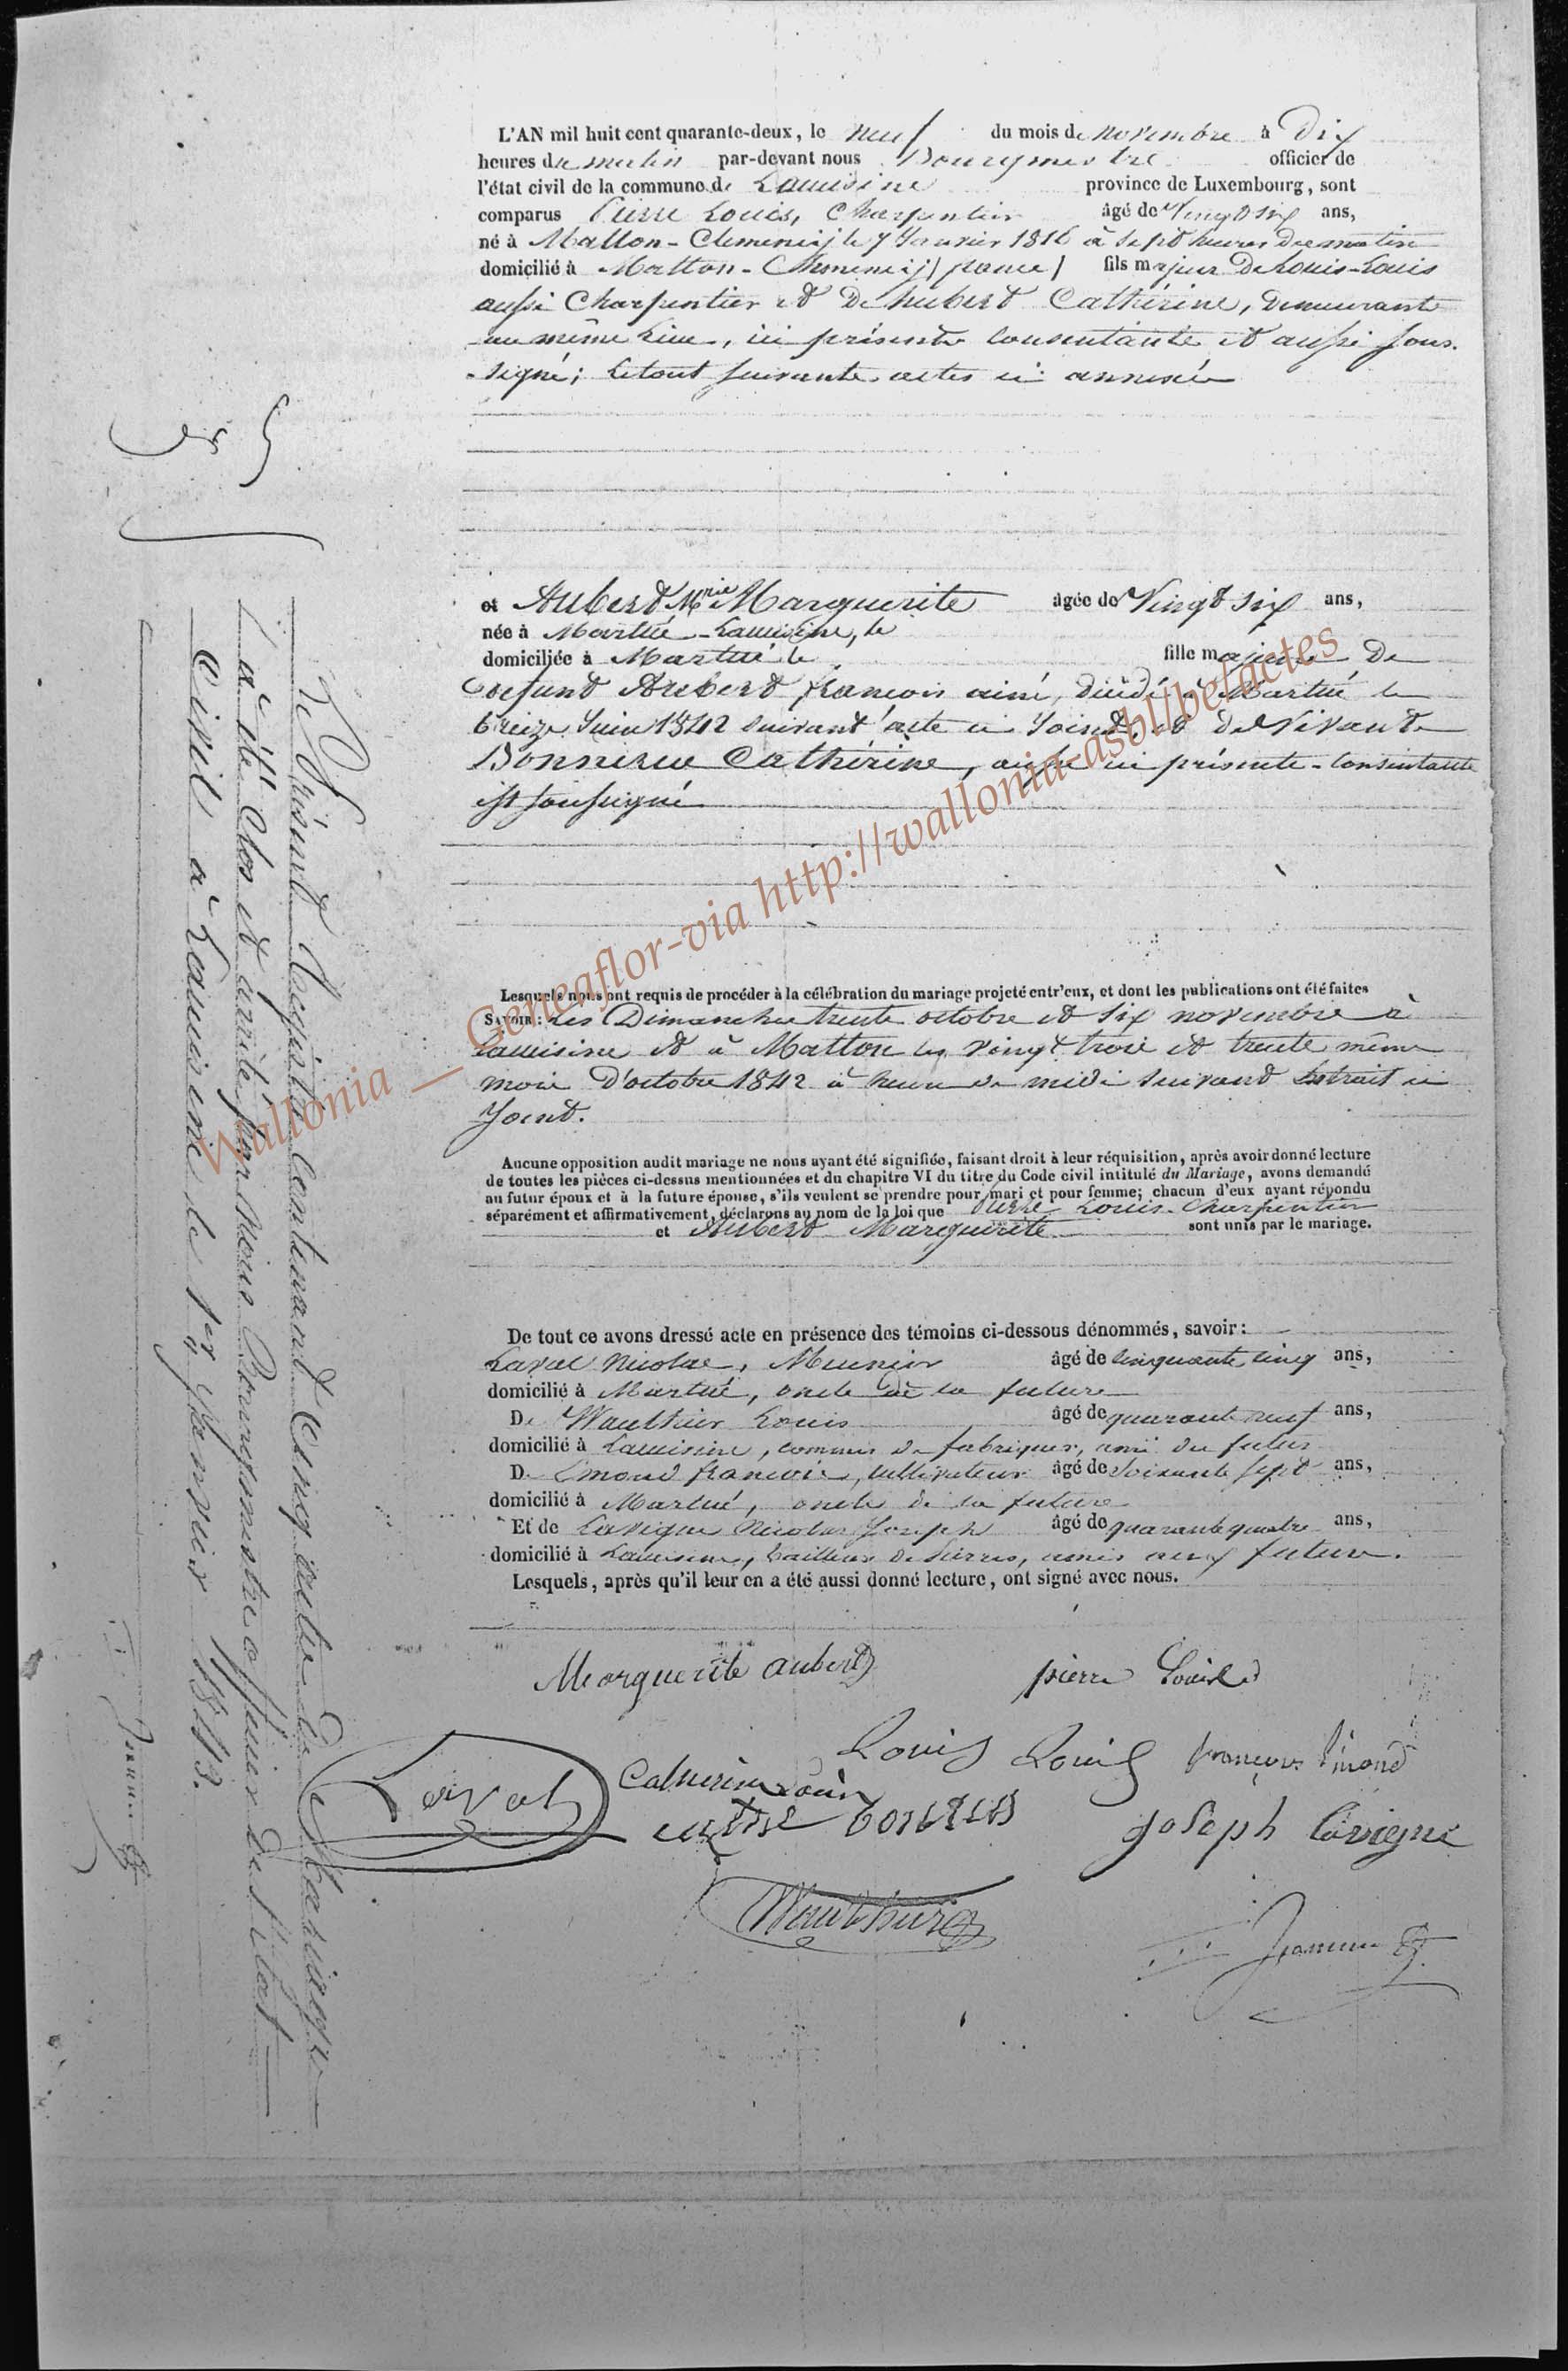 L'AN mil huit cent quarante-deux, le neuf du mois de novembre à Dix
heures du matin par-devant nous Bourgmestre officier de
l'état civil de la commune de Lacuisine province de Luxembourg, sont
comparus Pierre Louis, Charpentier âgé de Vingt six ans,
né à Matton-Clemency le 7 Janvier 1816 à sept heures du matin
domicilié à Matton-Clemency / france / fils majeur De Louis-Louis
aussi Charpentier et De hubert Catherine, Demeurants
au même Lieu, ici présents consentants et aussi sous-
-signé; Le tout suivants actes ci annexés
N° 5
et Aubert Mrie Marguerite âgée de Vingt six ans,
née à Martué-Lacuisine, le
domiciliée à Martué le fille majeure De
Defunt Aubert françois ainé, Décédé à Martué le
treize Juin 1842 suivant acte ci Joint, et De Vivante
Catherine, aussi ici présente-Consentante
et soussigné
Lesquels nous ont requis de procéder à la célébration du mariage projeté entr'eux, et dont les publications ont été faites
SAVOIR: Les Dimanches trente octobre et six novembre à
Lacuisine et à Matton les vingt trois et trente même
mois D'octobre 1842 à heure de midi suivant Extrait ci
Joint.
Aucune opposition audit mariage ne nous ayant été signifiée, faisant droit à leur réquisition, après avoir donné lecture
de toutes les pièces ci-dessus mentionnées et du chapitre VI du titre du Code civil intitulé du Mariage, avons demandé
au futur époux et à la future épouse, s'ils veulent se prendre pour mari et pour femme; chacun d'eux ayant répondu
séparément et affirmativement, déclarons au nom de la loi que Pierre Louis-Charpentier
et Aubert Marguerite sont unis par le mariage.
De tout ce avons dressé acte en présence des témoins ci-dessous dénommés, savoir:
Laval Nicolas, Meunier âgé de Cinquante cinq ans,
domicilié à Martué, oncle de la future
De Wauthier Louis âgé de quarante neuf ans,
domicilié à Lacuisine, commis de fabriques, ami du futur
De Emond françois, Cultivateur âgé de Soixante sept ans,
domicilié à Martué, oncle de la future
Et de Lavigne Nicolas Joseph âgé de quarante quatre ans,
domicilié à Lacuisine, tailleur De Pierres, amis aux futurs.
Lesquels, après qu'il leur en a été aussi donné lecture, ont signé avec nous.
Marguerite aubert pierre Louis
Louis Louis françois Emond
Laval Catherine
Joseph Lavigne
Wauthier
Le Présent Registre Contenant Cinq actes De Mariage
a été Clos et arrêté par Nous Bourgmestre officier De l'Etat
Civil à Lacuisine le 1er Janvier 1843.
Wallonia _ Geneaflor-via http://wallonia-asbl/be/actes